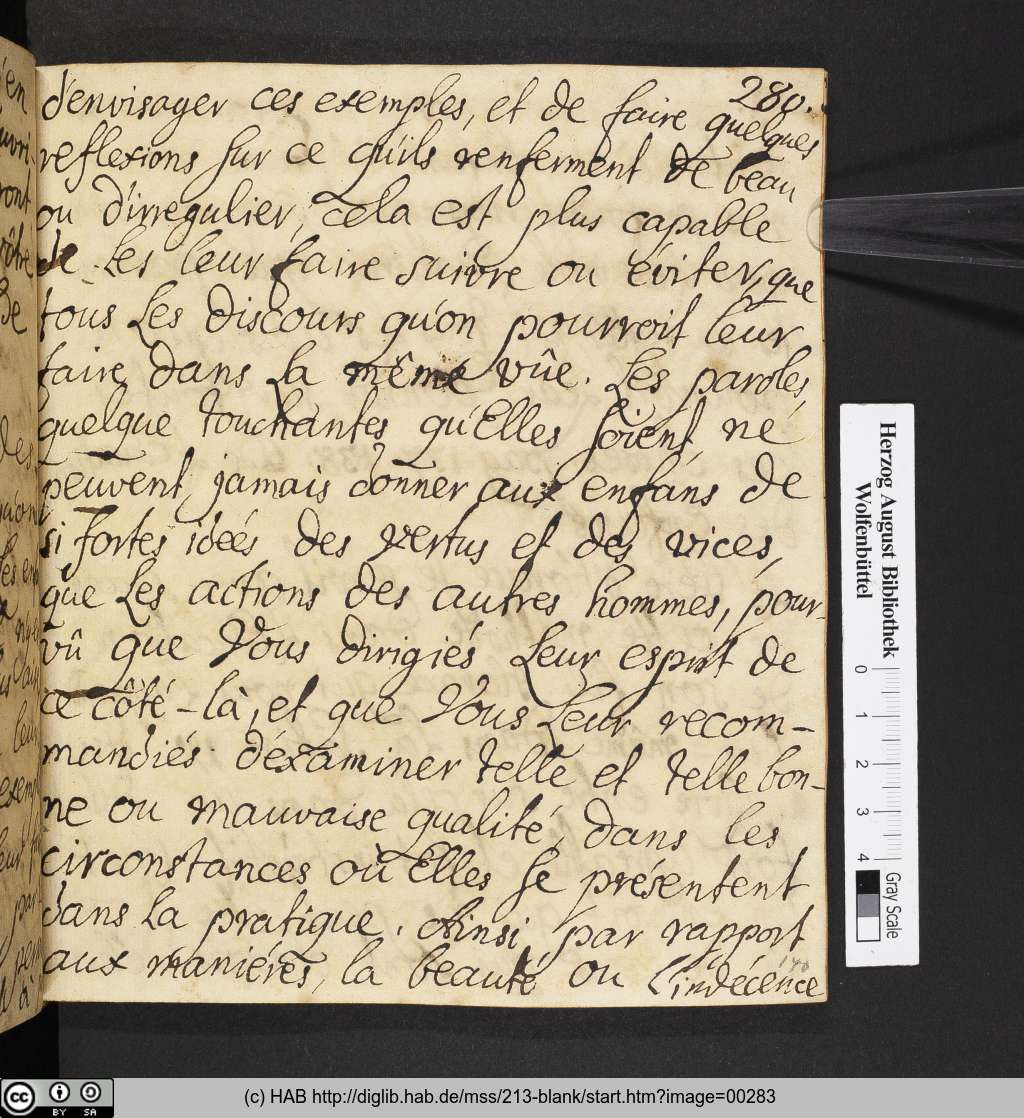 280.
d'envisager ces exemples, et de faire quelques
reflexions sur ce qu'ils renferment de beau
ou d'irregulier, cela est plus capable
de Les leur faire suivre ou éviter, que
tous Les discours qu'on pourroit leur
faire dans La même vûe. Les paroles,
quelque touchantes qu'Elles soient, ne
peuvent jamais donner aux enfans de
si fortes idées des vertus et des vices,
que Les actions des autres hommes, pour-
vû que Vous dirigiés Leur esprit de
ce côté-là, et que Vous Leur recom-
mandiés d'éxaminer telle et telle bon-
ne ou mauvaise qualité, dans les
circonstances où Elles se présentent
dans La pratique. Ainsi par rapport
aux maniéres, la beauté ou L'indécence
Herzog August Bibliothek
Wolfenbüttel
0 1 2 3 4
Gray Scale
cc BY SA
(c) HAB http://diglib.hab.de/mss/213-blank/start.htm?image=00283